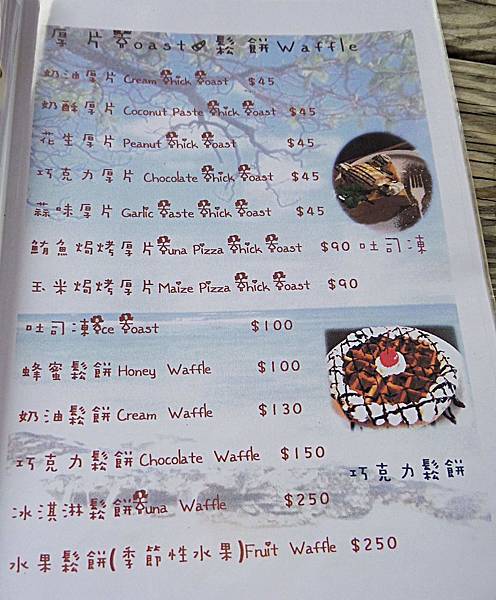 厚片Toast 鬆餅Waffle
奶油厚片 Cream Thick Toast $45
奶酥厚片 Coconut Paste Thick Toast $45
花生厚片 Peanut Thick Toast $45
巧克力厚片 Chocolate Thick Toast $45
蒜味厚片 Garlic Taste Thick Toast $45
鮪魚焗烤厚片 Tuna Pizza Thick Toast $90 吐司凍
玉米焗烤厚片 Maize Pizza Thick Toast $90
吐司凍 Ice Toast $100
蜂蜜鬆餅 Honey Waffle $100
奶油鬆餅 Cream Waffle $130
巧克力鬆餅 Chocolate Waffle $150
巧克力鬆餅
冰淇淋鬆餅 Tuna Waffle $250
水果鬆餅(季節性水果)Fruit Waffle $250